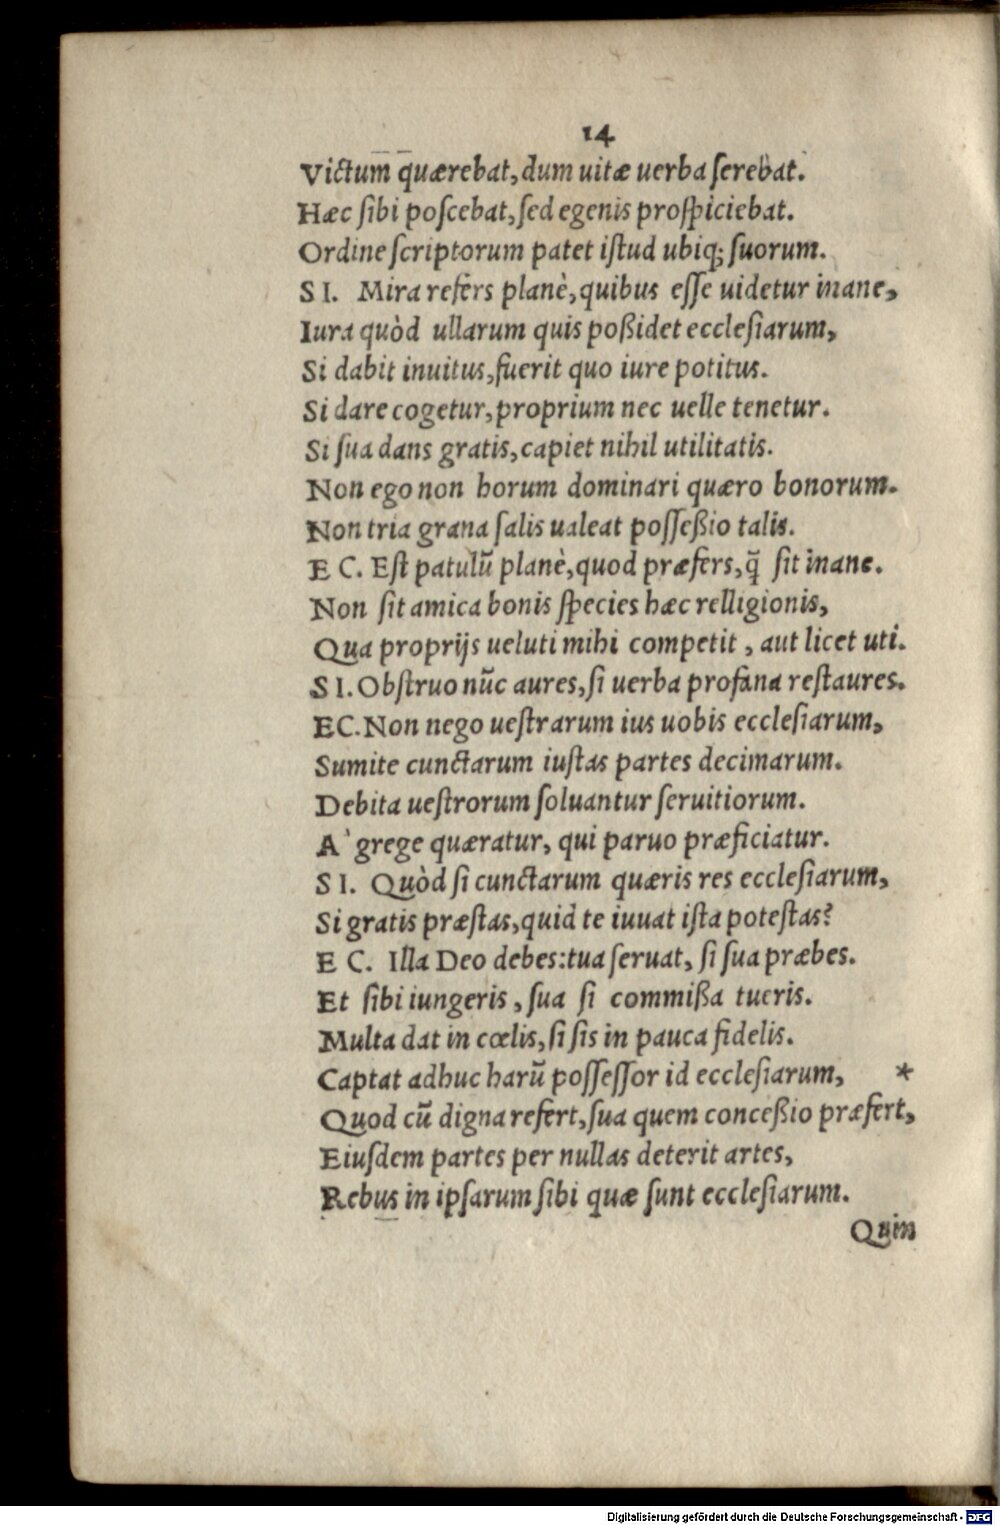 14
Victum quærebat, dum uitæ uerba serebat.
Hæc sibi poscebat, sed egenis prospiciebat.
Ordine scriptorum patet istud ubiq; suorum.
S I. Mira refers planè, quibus esse uidetur inane,
Iura quòd ullarum quis poßidet ecclesiarum,
Si dabit inuitus, fuerit quo iure potitus.
Si dare cogetur, proprium nec uelle tenetur.
Si sua dans gratis, capiet nihil utilitatis.
Non ego non horum dominari quæro bonorum.
Non tria grana salis ualeat posseßio talis.
E C. Est patulũ planè, quod præfers, q̃ sit inane.
Non sit amica bonis species hæc relligionis,
Qua proprijs ueluti mihi competit, aut licet uti.
S I. Obstruo nũc aures, si uerba profana restaures.
EC. Non nego uestrarum ius uobis ecclesiarum,
Sumite cunctarum iustas partes decimarum.
Debita uestrorum soluantur seruitiorum.
A` grege quæratur, qui paruo præficiatur.
S I. Quòd si cunctarum quæris res ecclesiarum,
Si gratis præstas, quid te iuuat ista potestas?
E C. Illa Deo debes: tua seruat, si sua præbes.
Et sibi iungeris, sua si commißa tueris.
Multa dat in cœlis, si sis in pauca fidelis.
Captat adhuc harũ possessor id ecclesiarum, *
Quod cũ digna refert, sua quem conceßio præfert,
Eiusdem partes per nullas deterit artes,
Rebus in ipsarum sibi quæ sunt ecclesiarum.
Quin
Digitalisierung gefördert durch die Deutsche Forschungsgemeinschaft - DFG